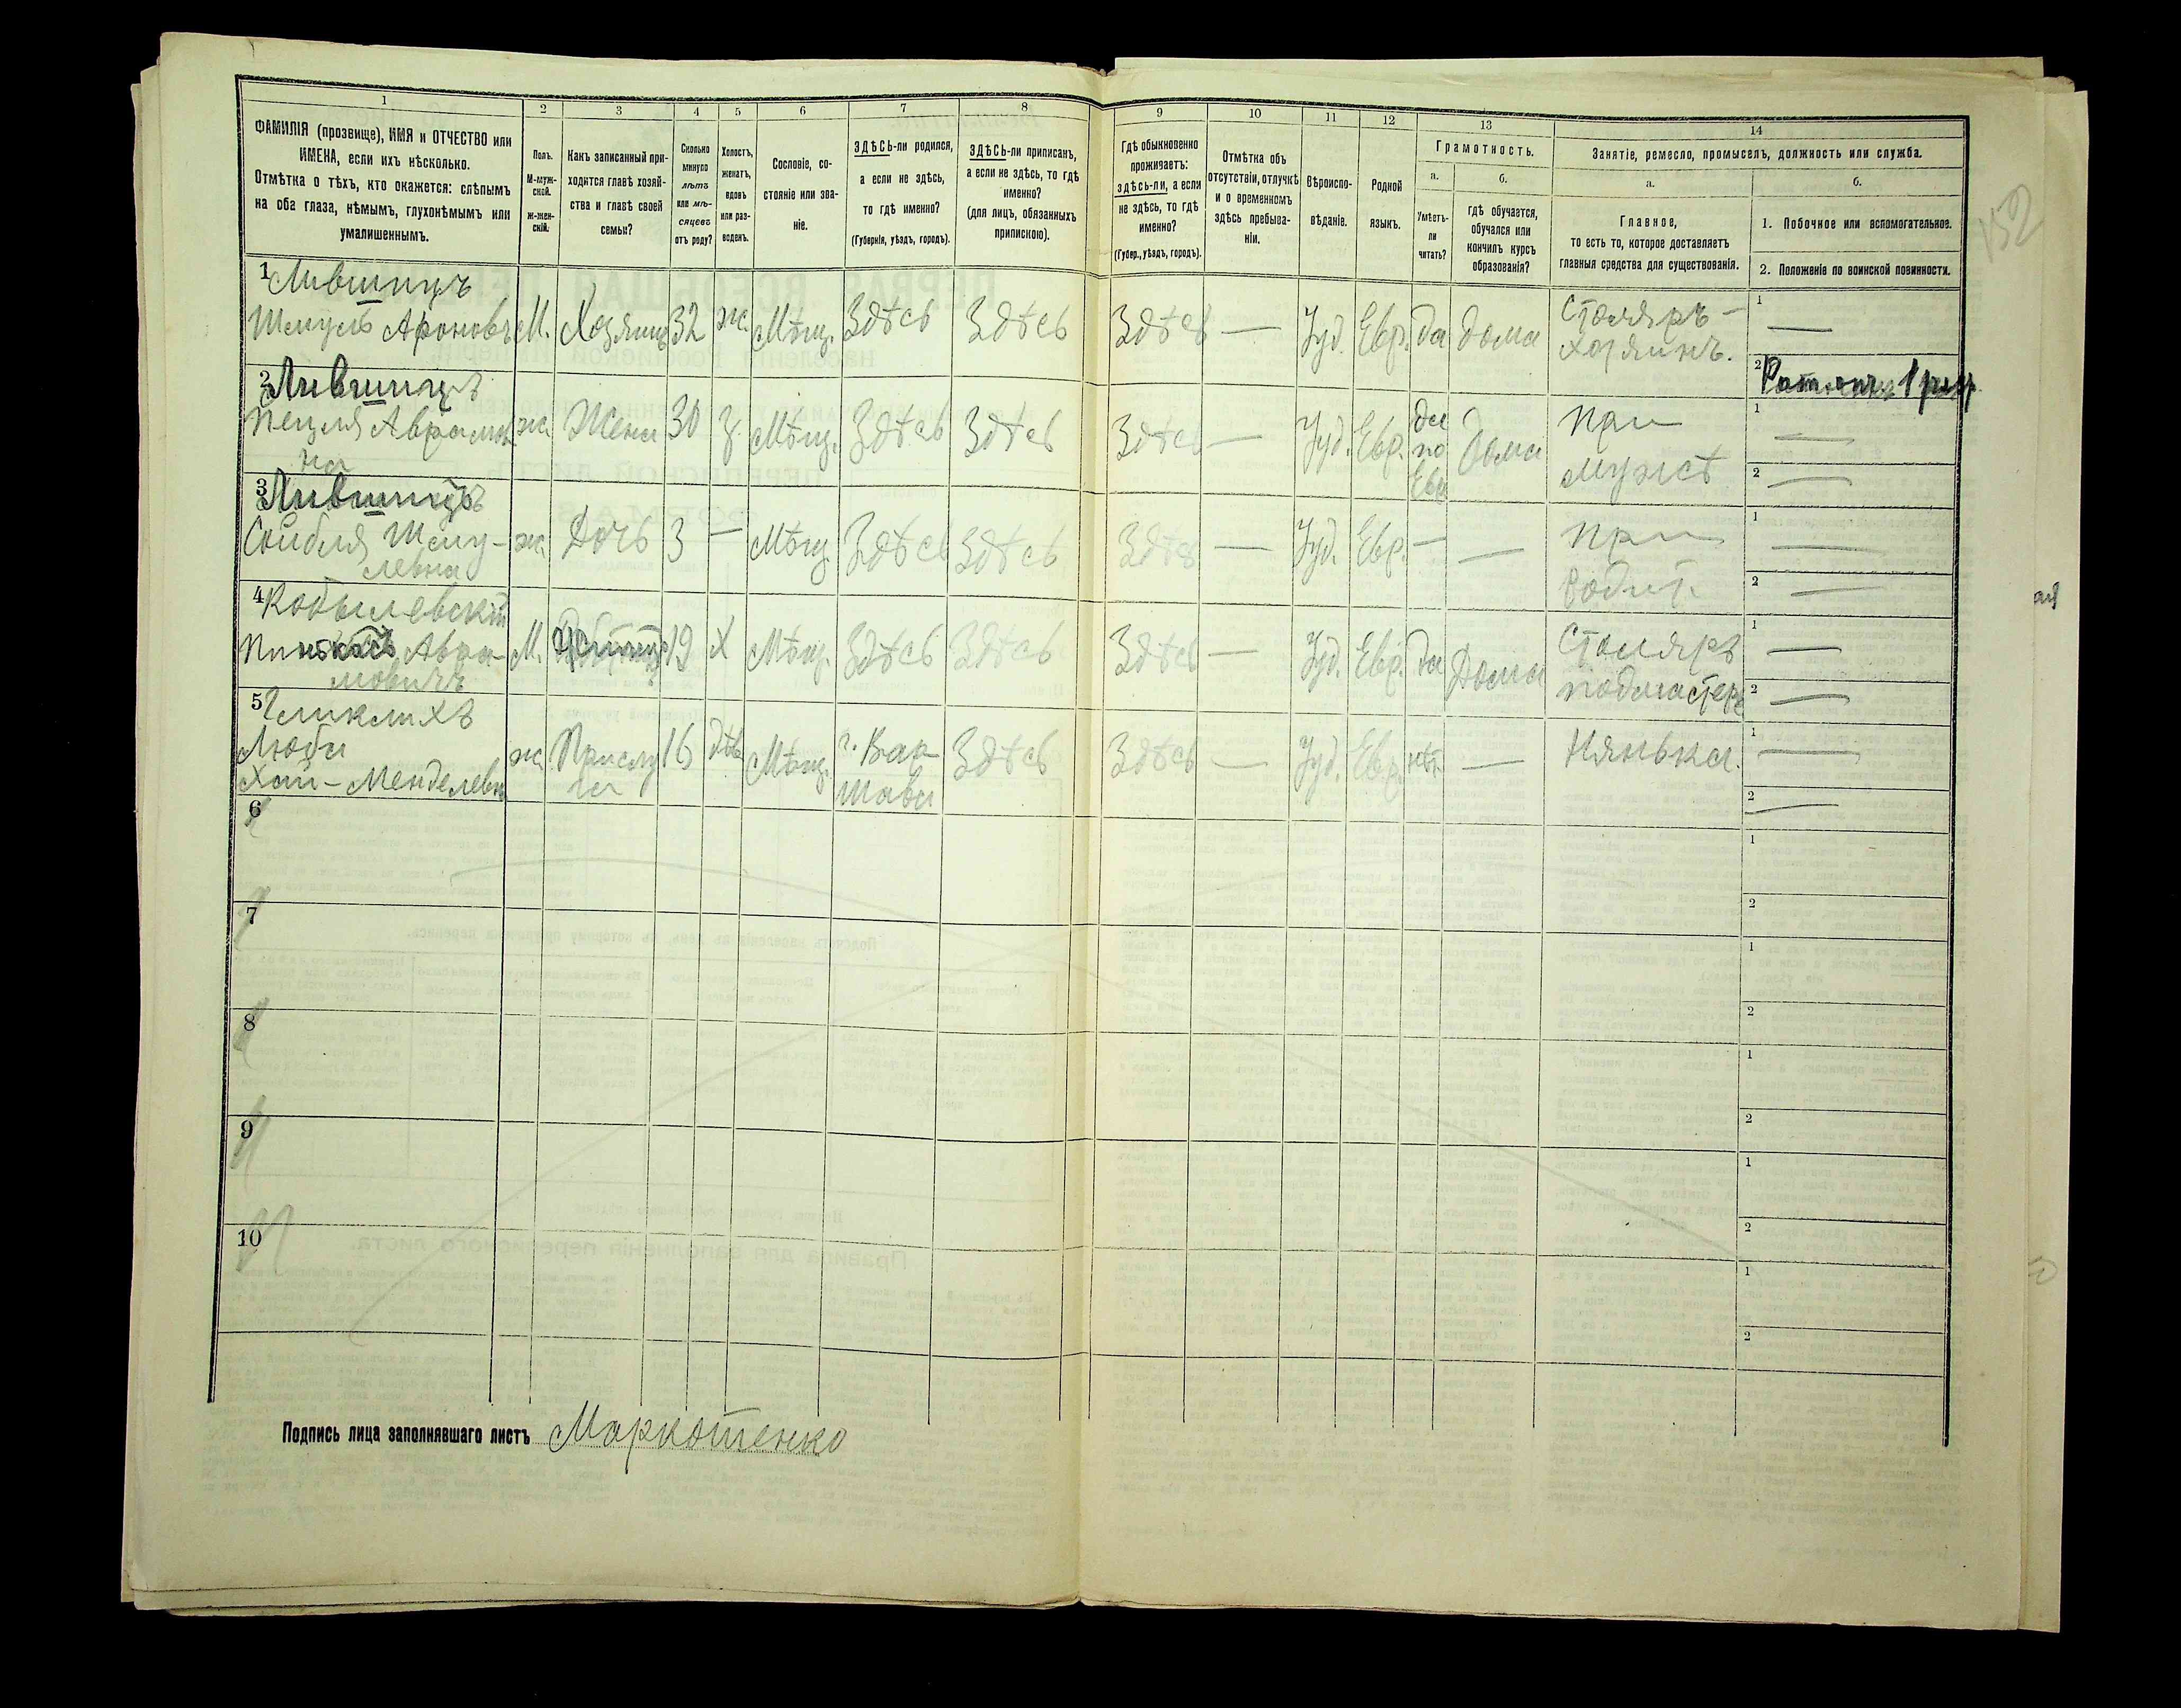 1 2 3 4 5 6 7 8 9 10 11 12 13 14
ФАМИЛІЯ (прозвище), ИМЯ и ОТЧЕСТВО или
ИМЕНА, если ихъ нѣсколько.
Отмѣтка о тѣхъ, кто окажется: слѣпымъ
на оба глаза, нѣмымъ, глухонѣмымъ или
умалишеннымъ.
Полъ.
М-муж-
ской.
Ж-жен-
скій.
Какъ записанный при-
ходится главѣ хозяй-
ства и главѣ своей
семьи?
Сколько
минуло
лѣтъ
или мѣ-
сяцевъ
отъ роду?
Холостъ,
женатъ,
вдовъ
или раз-
веденъ.
Сословіе, со-
стояніе или зва-
ніе.
ЗДѢСЬ-ли родился,
а если не здѣсь,
то гдѣ именно?
(Губернія, уѣздъ, городъ).
ЗДѢСЬ-ли приписанъ,
а если не здѣсь, то гдѣ
именно?
(для лицъ, обязанныхъ
припискою).
Гдѣ обыкновенно
проживаетъ:
здѣсь-ли, а если
не здѣсь, то гдѣ
именно?
(Губер., уѣздъ, городъ).
Отмѣтка объ
отсутствіи, отлучкѣ
и о временномъ
здѣсь пребыва-
ніи.
Вѣроиспо-
вѣданіе.
Родной
языкъ.
Грамотность.
а.
Умѣетъ-
ли
читать?
б.
гдѣ обучается,
обучался или
кончилъ курсъ
образованія?
Занятіе, ремесло, промыселъ, должность или служба.
а.
Главное,
то есть то, которое доставляетъ
главныя средства для существованія.
б.
1. Побочное или вспомогательное.
2. Положеніе по воинской повинности.
152
1 Лившицъ
Шмуль Ароновъ М. Хозяинъ 32 ж. Мѣщ. Здѣсь Здѣсь Здѣсь — Іуд. Евр. да дома Столяръ –
хозяинъ.
1 —
2 Ратникъ 1 разр.
2 Лившицъ
Пешля Аврамов
на
ж Жена 30 з. Мѣщ. Здѣсь Здѣсь Здѣсь — Іуд. Евр. да
по
Евр
Дома
при
мужѣ
1 —
2 —
3 Лившицъ
Шму-
левна
ж Дочь 3 — Мѣщ Здѣсь Здѣсь Здѣсь — Іуд. Евр. — —
при
родит.
1 —
2 —
4 Кобылевскій
Пинькасъ Авра-
мовичъ
М. 19 Х Мѣщ. Здѣсь Здѣсь Здѣсь — Іуд. Евр. да Дома
Столяръ
подмастерь
1 —
2 —
5 Гликлихъ
Люба
Хай – Менделевн
ж Прислу
га
16 дѣв Мѣщ. г. Вар
шава
Здѣсь Здѣсь — Іуд. Евр. нѣт. — Нянька.
1 —
2 —
6
1
2
7
1
2
8
1
2
9
1
2
10
1
2
Подпись лица заполнявшаго листъ Маркотенко